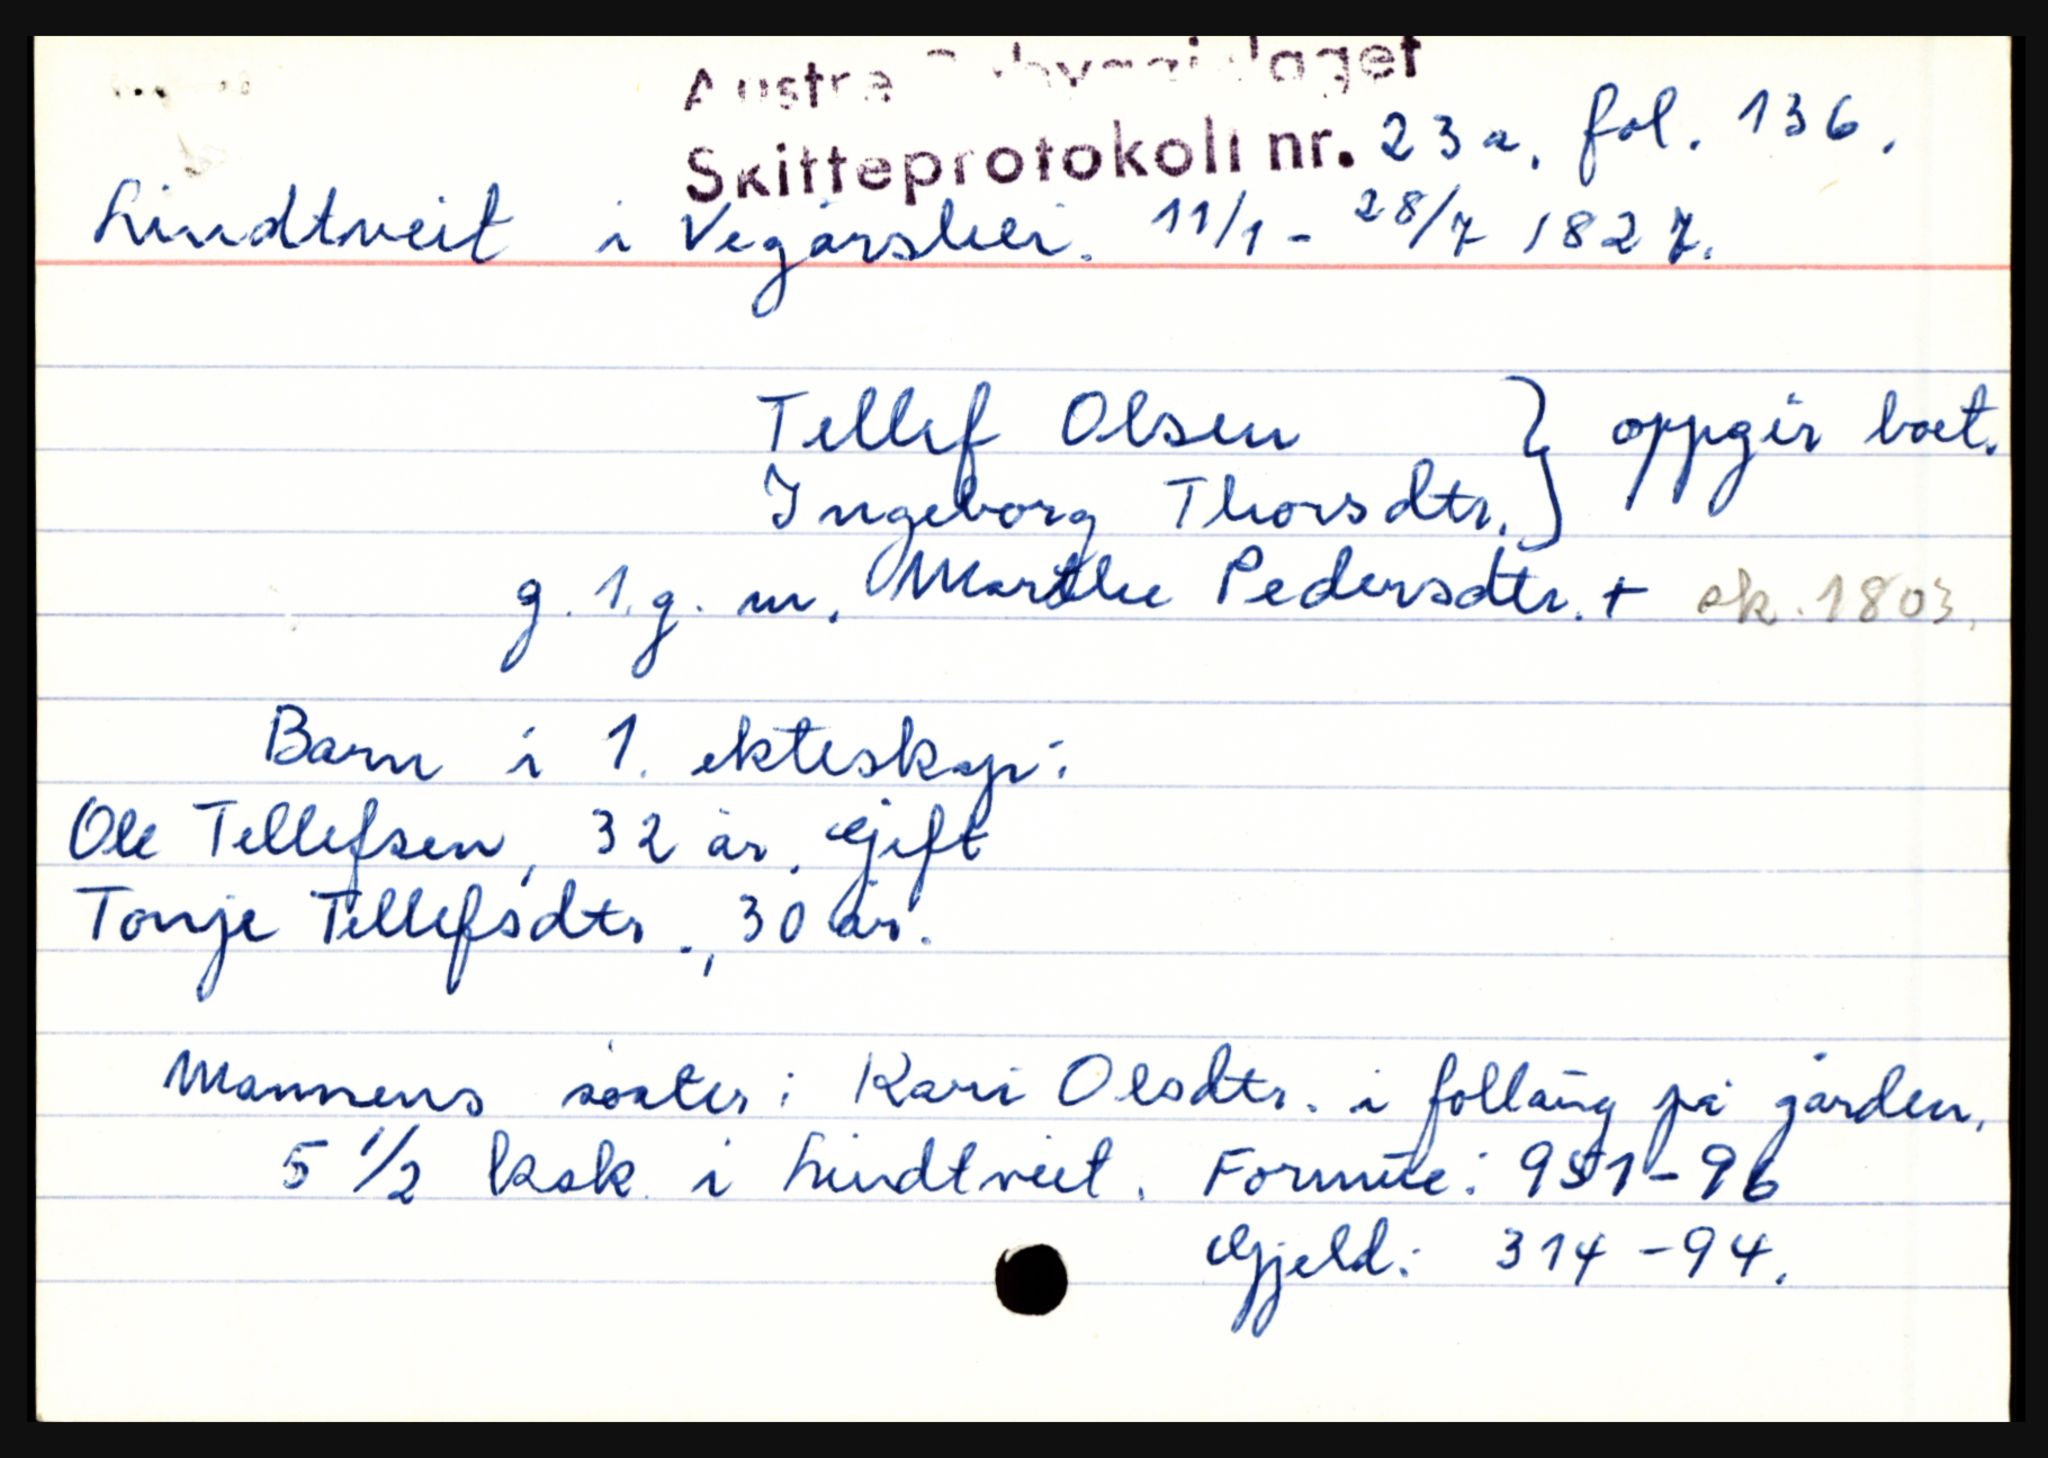 Austre
Skifteprotokoll nr. 23a, fol. 136.
Lindtveit i Vegårshei. 11/1 - 28/7 1827.
Tellef Olsen } oppgir boet.
Ingeborg Thorsdtr.
g. 1. g. m. Marthe Pedersdtr. + sk. 1803.
Barn i 1. ekteskap:
Ole Tellefsen, 32 år, Gift
Tonje Tellefsdtr., 30 år.
Mannens søster: Kari Olsdtr. i follaug på gården.
5 1/2 ksk. i Lindtveit. Formue: 951-96
Gjeld: 314-94.